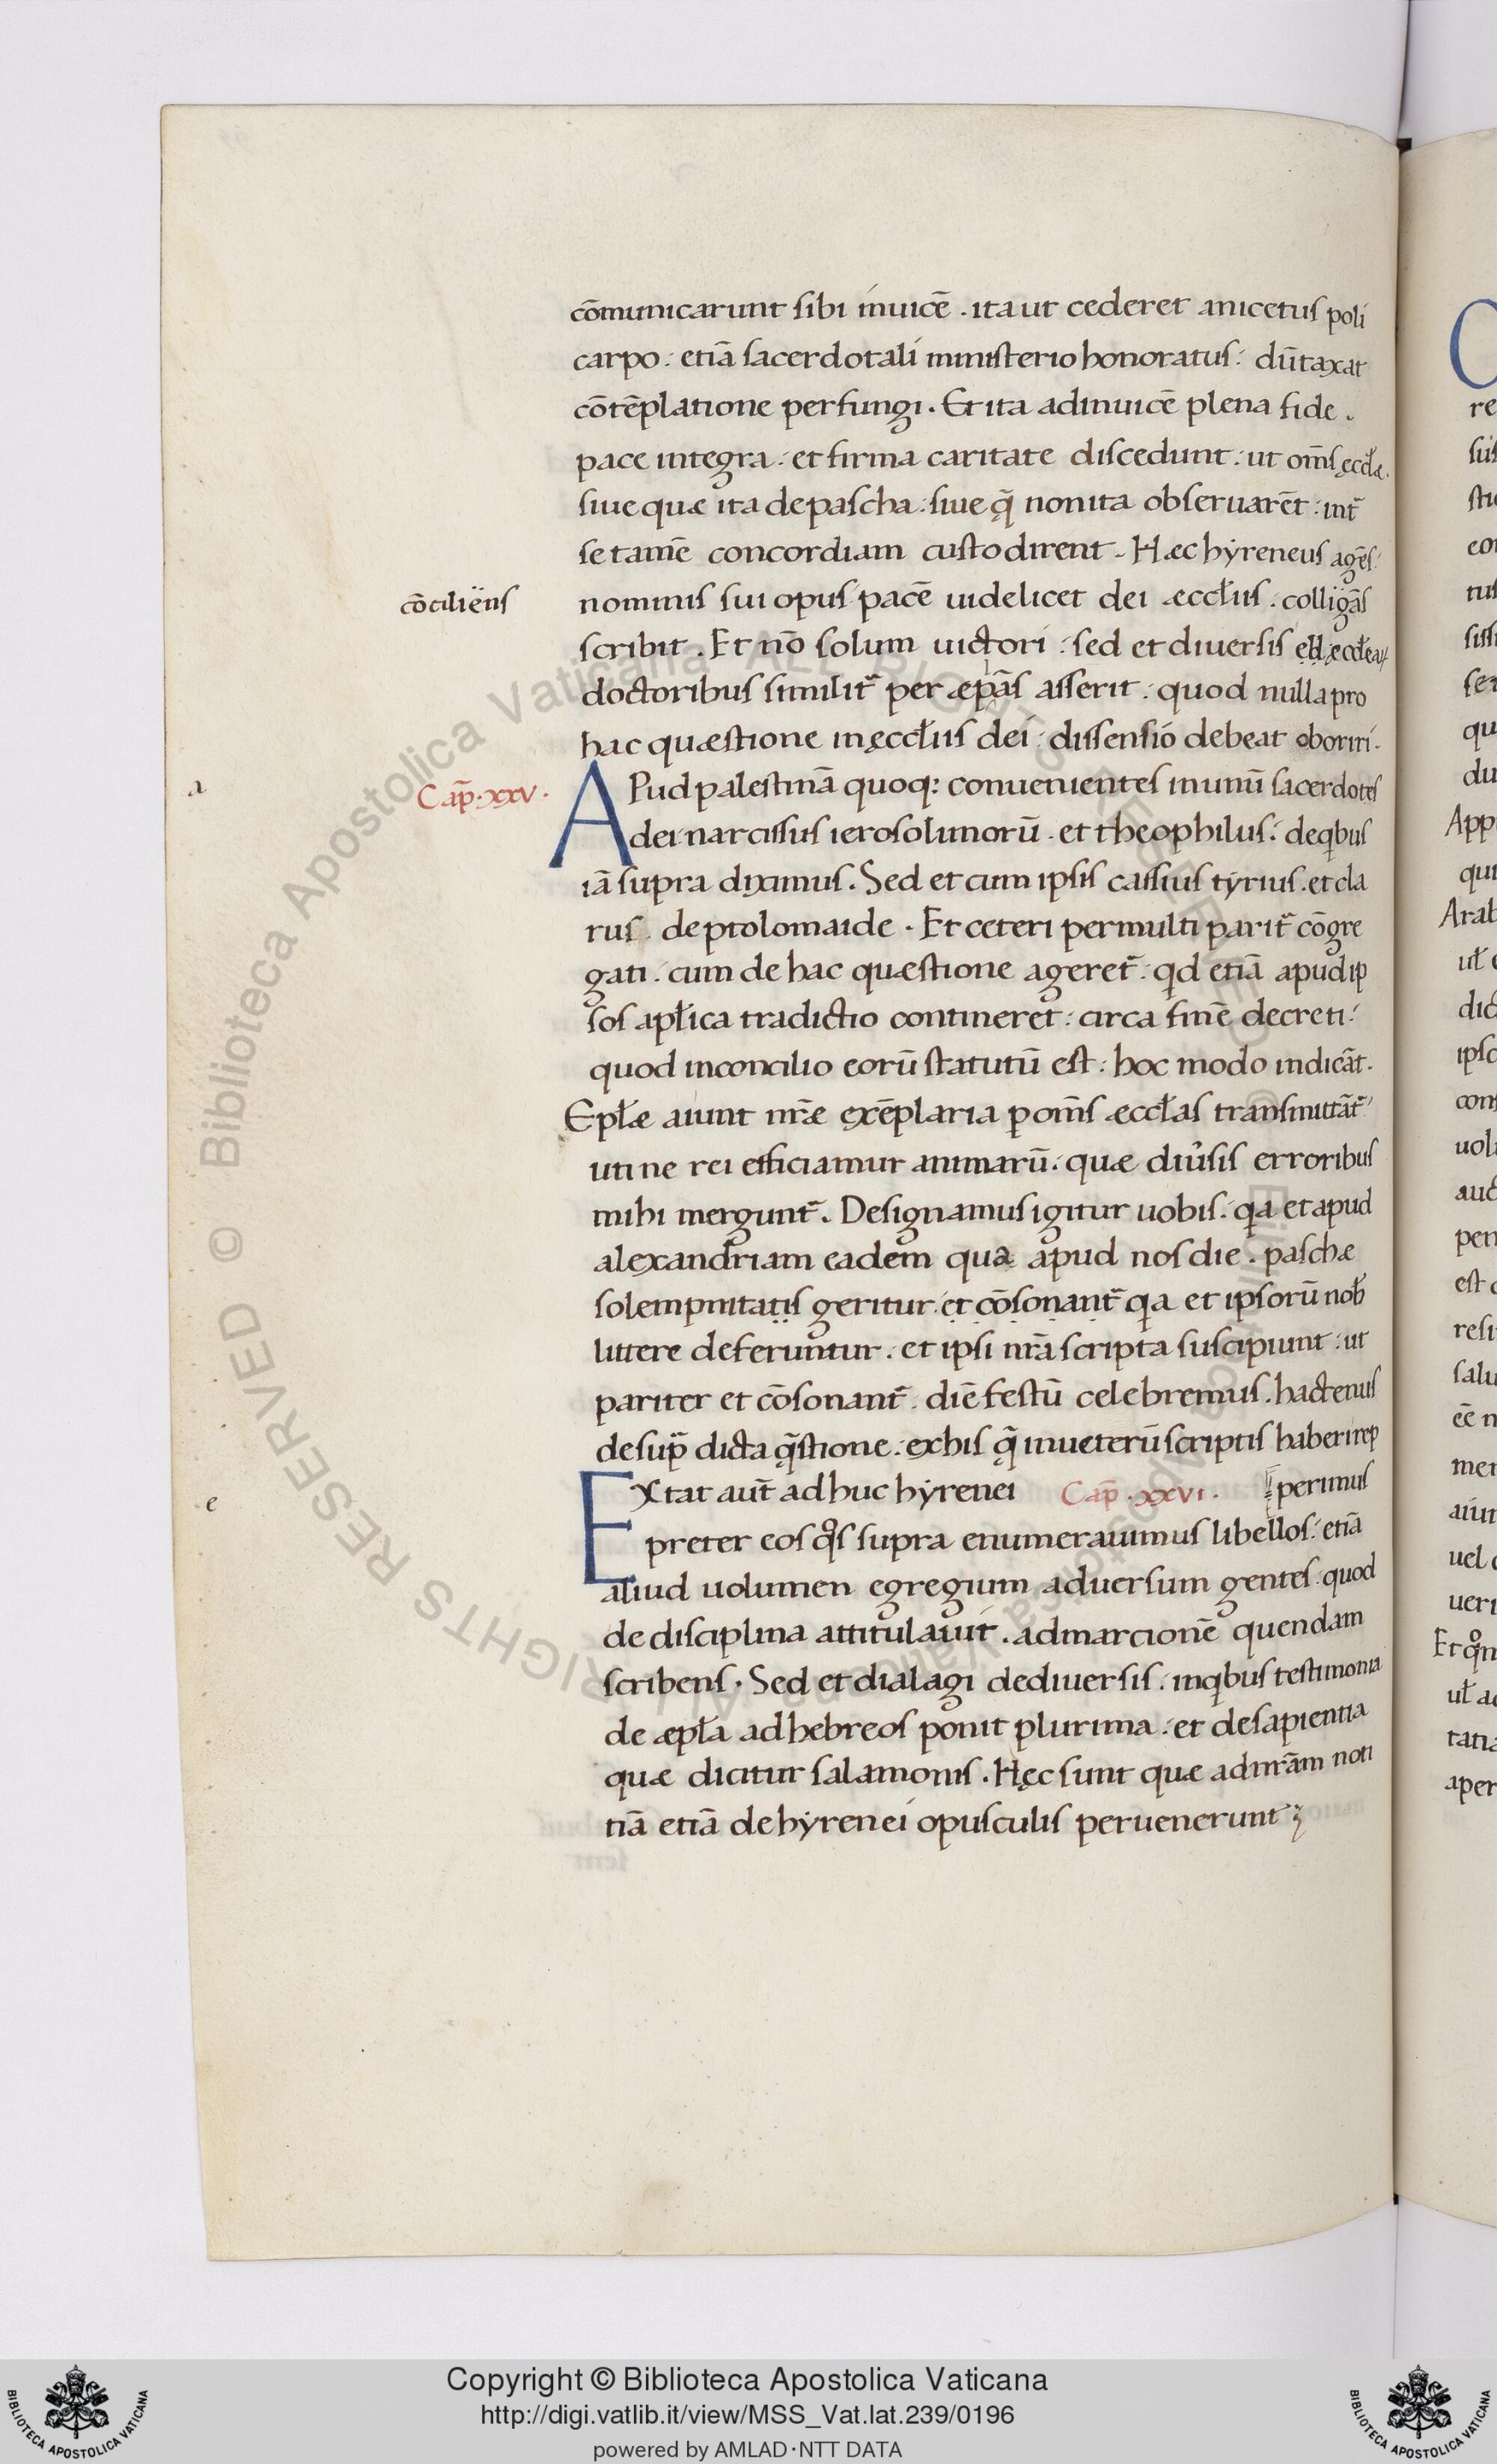 cōmunicarunt sibi inuicē . ita ut cederet anicetus poli
carpo : etiā sacerdotali ministerio honoratus : dūtaxat
cōtēplatione perfungi . Et ita adinuicē plena fide .
pace integra : et firma caritate discedunt : ut om̄s ęccłæ .
siue quæ ita de pascha : siue q̨̄ non ita obseruarēt : int̄
se tamē concordiam custodirent . Hæc hyreneus agēs :
cōciliēns
nominis sui opus pacē uidelicet dei æccłiis . colligās
scribit . Et nō solum uictori : sed et diuersis ełł æccłeaꝝ
doctoribus similit̄ per æpłās asserit : quod nulla pro
hac quæstione in ęccłiis dei : dissensio debeat oboriri .
a
Cap̄ . xxv .
APud palestinā quoq; conuenientes in unū sacerdotes
dei narcissus ierosolimorū . et theophilus : de qibus
iā supra diximus . Sed et cum ipsis cassius tyrius . et cla
rus de ptolomaide . Et ceteri permulti parit̄ cōgre
gati : cum de hac quæstione ageret̄ : qd etiā apud ip
sos apłica tradictio contineret : circa finē decreti :
quod in concilio eorū statutū est : hoc modo indicāt .
Epłæ aiunt nr̄æ exēplaria p om̄s æccłas transmittāt̄
uti ne rei efficiamur animarū : quæ diu̓sis erroribus
mihi mergunt̄ . Designamus igitur uobis : qa et apud
alexandriam eadem qua apud nos die . paschæ
solempnitatis geritur . et cōsonant̄ qa et ipsorū nob̄
littere deferuntur . et ipsi nr̄ā scripta suscipiunt : ut
pariter et cōsonant̄ . diē festū celebremus . hactenus
de sup̄ dicta q̨̄stione : ex his q̨̄ in ueterū scriptis haberi rep
e
EXtat aut̄ ad huc hyrenei Cap̄ . xxvi . perimus
preter eos qͦs supra enumerauimus libellos : etiā
aliud uolumen egregium aduersum gentes : quod
de disciplina attitulauit . ad marcionē quendam
scribens . Sed et dialagi de diuersis : in qibus testimonia
de æpła ad hebreos ponit plurima : et de sapientia
quæ dicitur salamonis . Hęc sunt quæ ad nr̄ām noti
tiā etiā de hyrenei opusculis peruenerunt ;
Copyright © Biblioteca Apostolica Vaticana
http://digi.vatlib.it/view/MSS_Vat.lat.239/0196
powered by AMLAD·NTT DATA